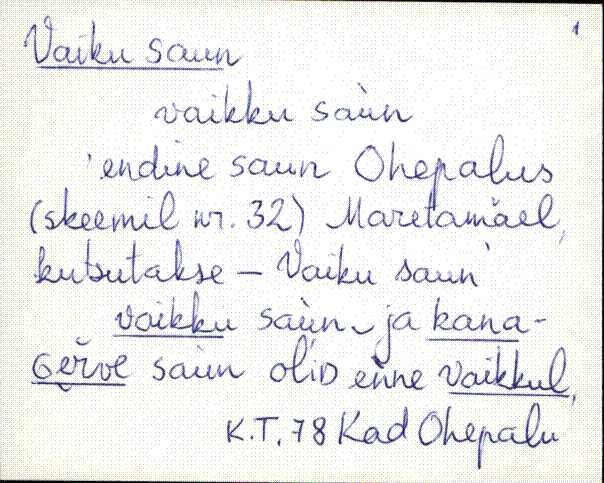 1
Vaiku saun
vaikku saùn
'endine saun Ohepalus
(skeemil nr. 32) Maretamäel,
kutsutakse – Vaiku saun'
vaikku saùn ja kana-
Gerve saùn oliD enne vaikkul,
K.T. 78 Kad Ohepalu